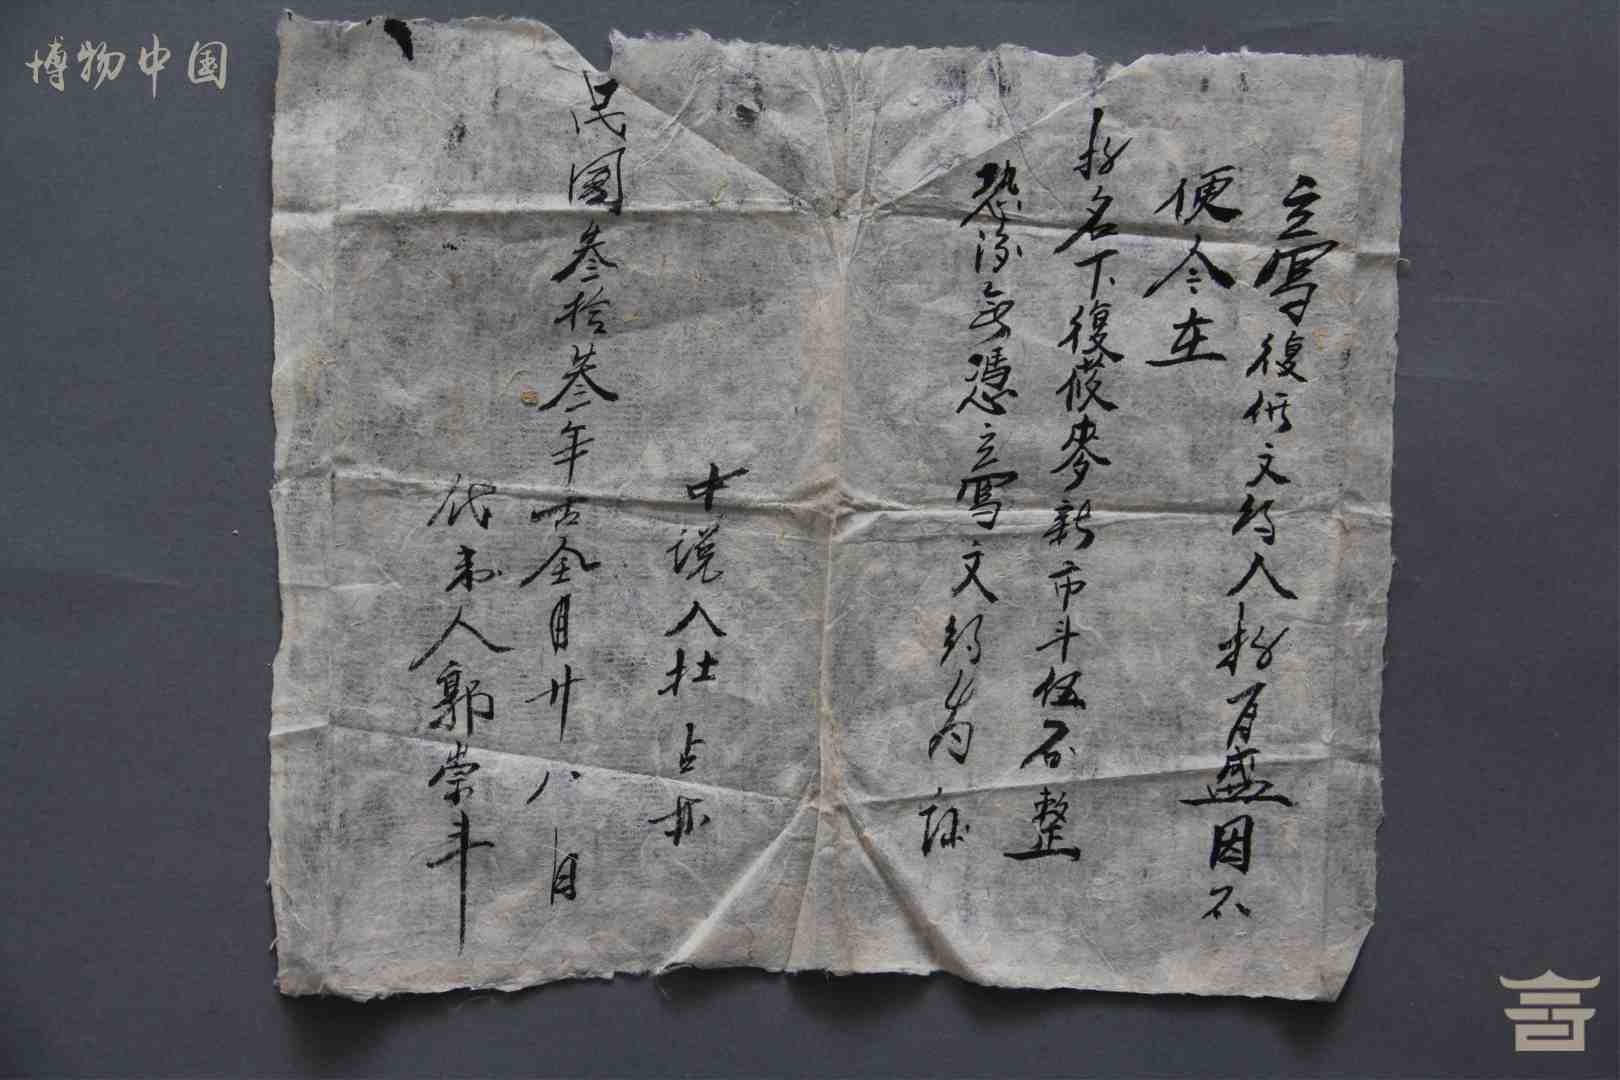 博物中国
立寫復借文約人 盛因不
便今在
名下復莜麥新市斗伍石整
恐後無憑立寫文約為証
中説人杜占
民國叁拾叁年古全月廿八日
代书人郭崇斗